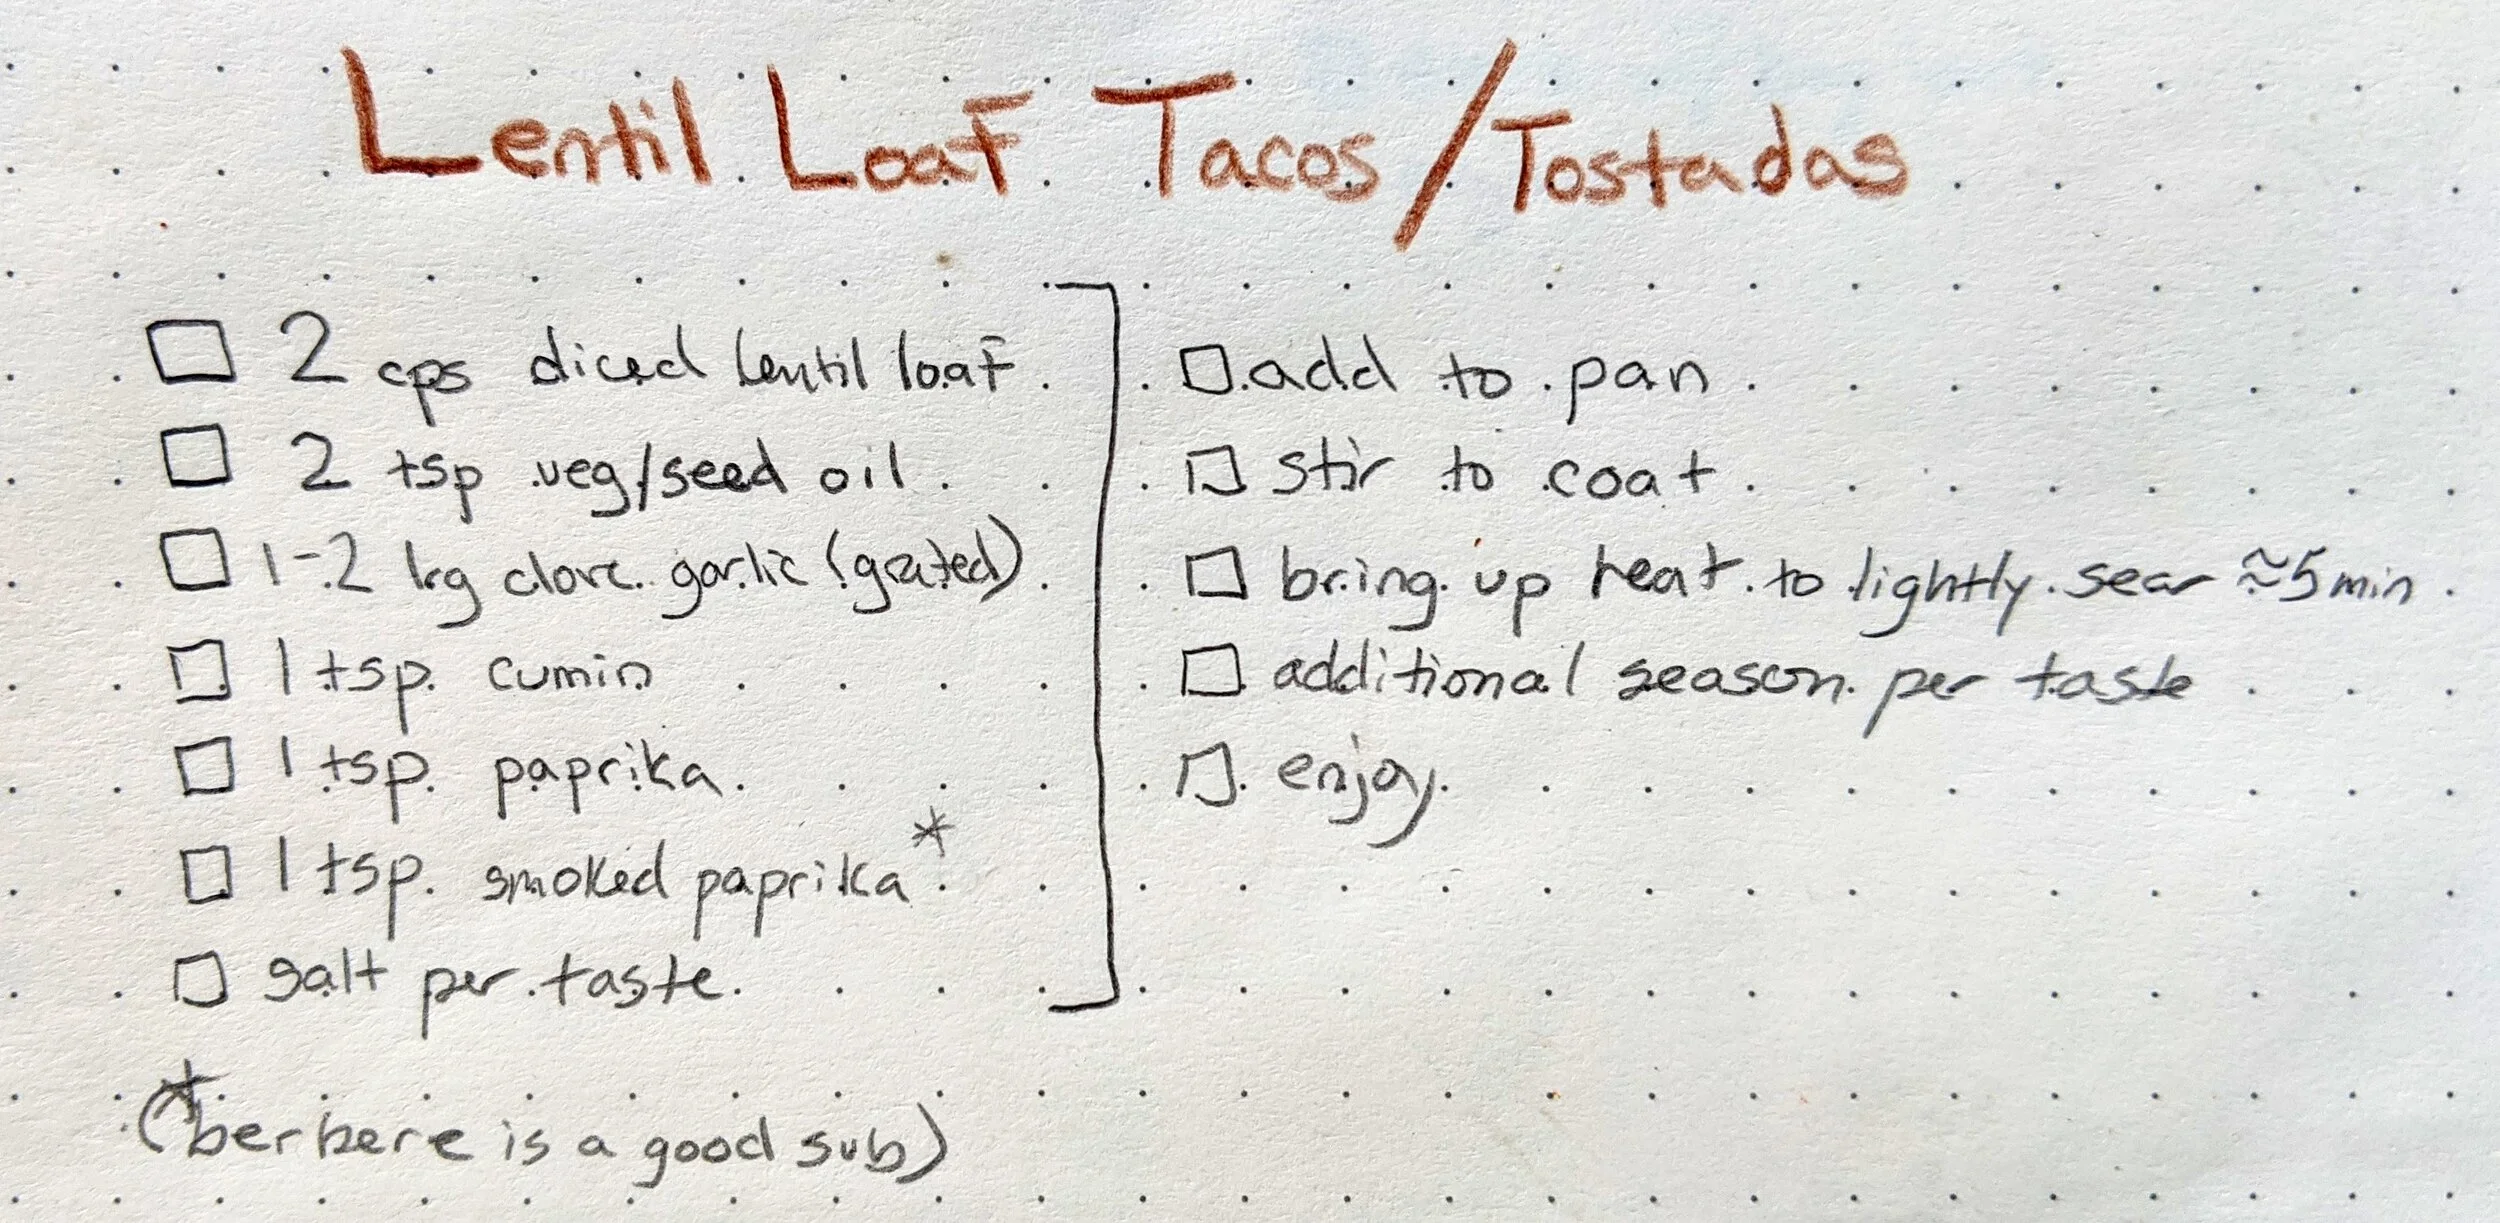 Lentil Loaf Tacos/Tostadas
2 cps diced lentil loaf
2 tsp veg/seed oil
1-2 lrg clove garlic (grated)
1 tsp. cumin
1 tsp. paprika
1 tsp. smoked paprika*
salt per taste
(*berbere is a good sub)
add to pan
stir to coat
bring up heat to lightly sear ≈5min
additional season per taste
enjoy